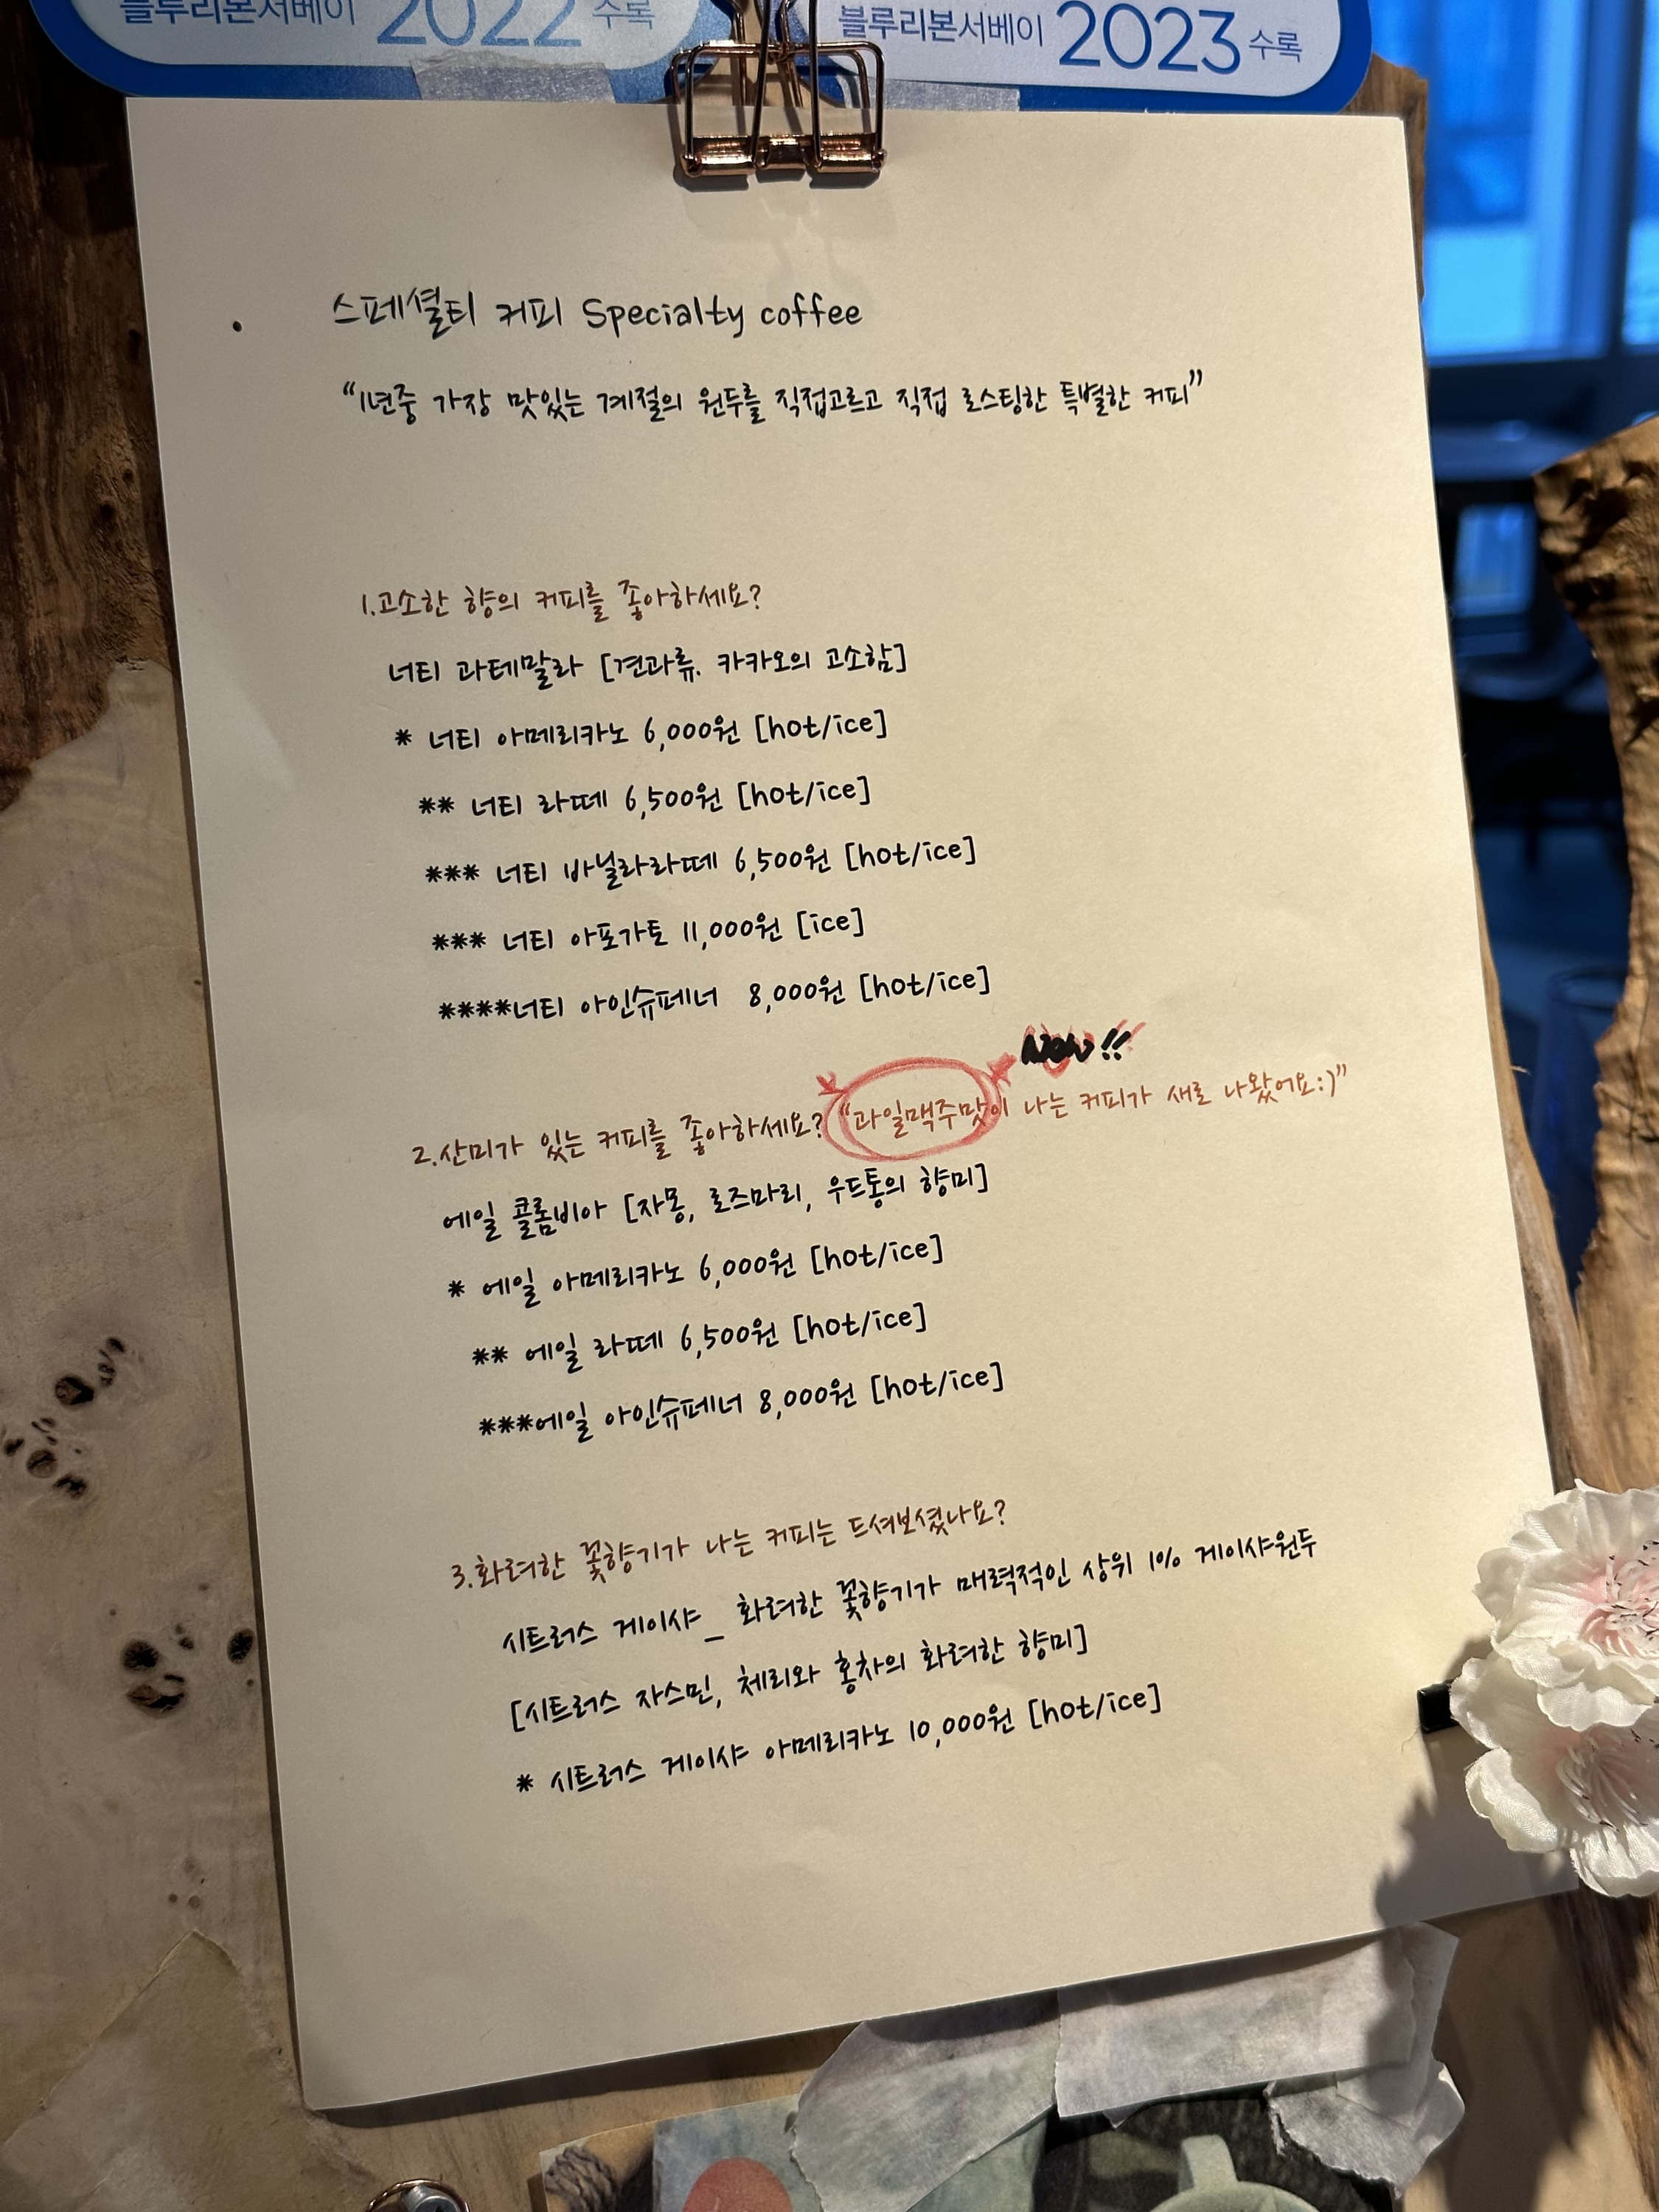 블루리본서베이 2022 수록
블루리본서베이 2023 수록
스페셜티 커피 Specialty coffee
“1년중 가장 맛있는 계절의 원두를 직접고르고 직접 로스팅한 특별한 커피”
1.고소한 향의 커피를 좋아하세요?
너티 과테말라 [견과류. 카카오의 고소함]
* 너티 아메리카노 6,000원 [hot/ice]
** 너티 라떼 6,500원 [hot/ice]
*** 너티 바닐라라떼 6,500원 [hot/ice]
*** 너티 아포가토 11,000원 [ice]
****너티 아인슈페너 8,000원 [hot/ice]
New!!
2.산미가 있는 커피를 좋아하세요? “과일맥주맛이 나는 커피가 새로 나왔어요:)”
에일 콜롬비아 [자몽, 로즈마리, 우드통의 향미]
* 에일 아메리카노 6,000원 [hot/ice]
** 에일 라떼 6,500원 [hot/ice]
***에일 아인슈페너 8,000원 [hot/ice]
3.화려한 꽃향기가 나는 커피는 드셔보셨나요?
시트러스 게이샤_ 화려한 꽃향기가 매력적인 상위 1% 게이샤원두
[시트러스 자스민, 체리와 홍차의 화려한 향미]
* 시트러스 게이샤 아메리카노 10,000원 [hot/ice]